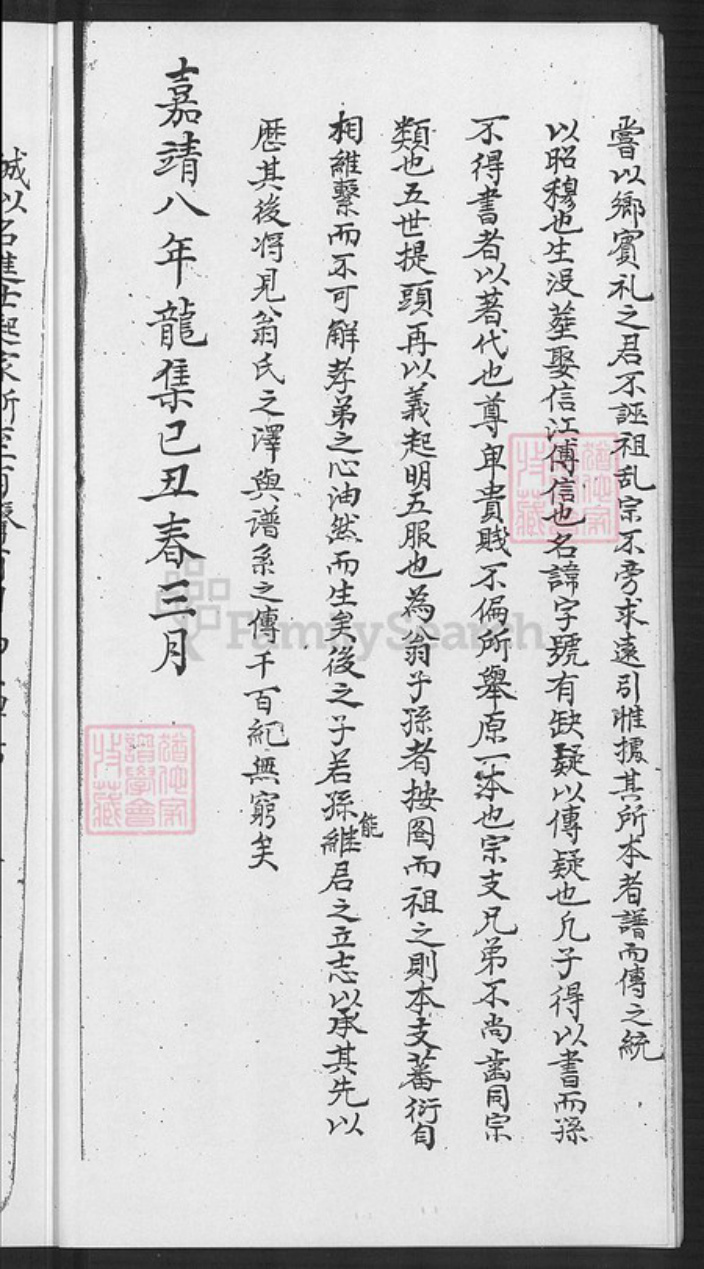 嘗以鄉賓礼之君不誣祖乱宗不旁求遠引惟據其所本者譜而傳之統
以昭穆也生沒塟娶信江傳信也名諱字號有缺疑以傳疑也凢子得以書而孫
不得書者以著代也尊卑貴賤不偏所舉原一本也宗支兄弟不尚齒同宗
類也五世提頭再以義起明五服也為翁子孫者按圖而祖之則本支蕃衍自
相維繫而不可解孝弟之心油然而生矣後之子若孫能維君之立志以承其先以
歷其後将見翁氏之澤與譜系之傳千百紀無窮矣
嘉靖八年龍集己丑春三月
FamilySearch
譜學會
特藏
譜學會
特藏
誠以名進士起家所至有